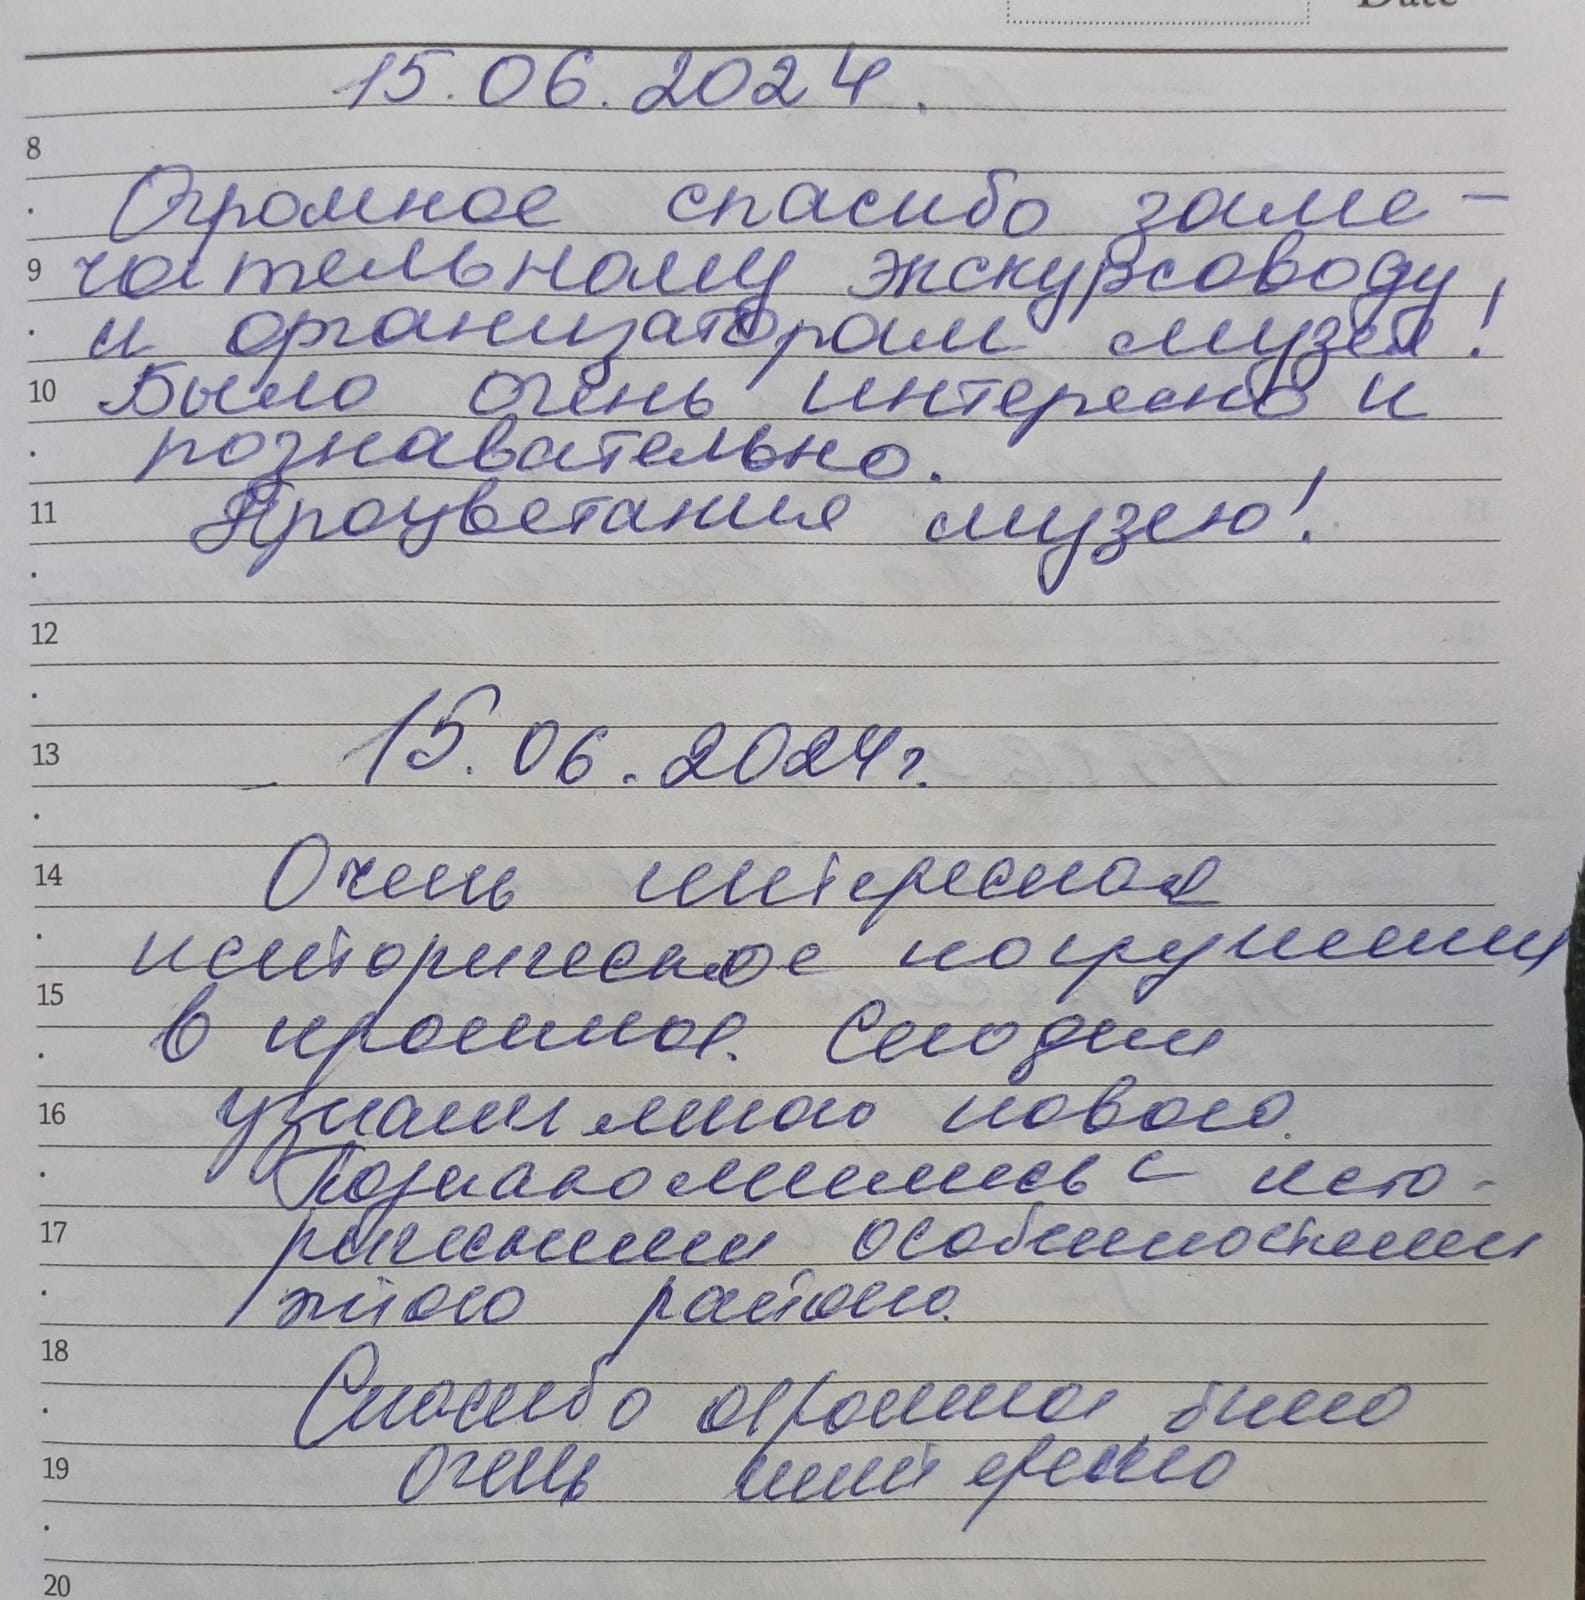 Date
15.06.2024.
8
Огромное спасибо заме-
9 чательному экскурсоводу
и организаторам музея!
10 Было очень интересно и
познавательно.
11 Процветания музею!
12
13 15.06.2024г.
14 Очень интересная
историческое погружения
15 в прошлое. Сегодня
16 узнали много нового.
Познакомились с исто-
17 рическими особенностями
этого района.
18
Спасибо огромное, было
19 очень интересно
20